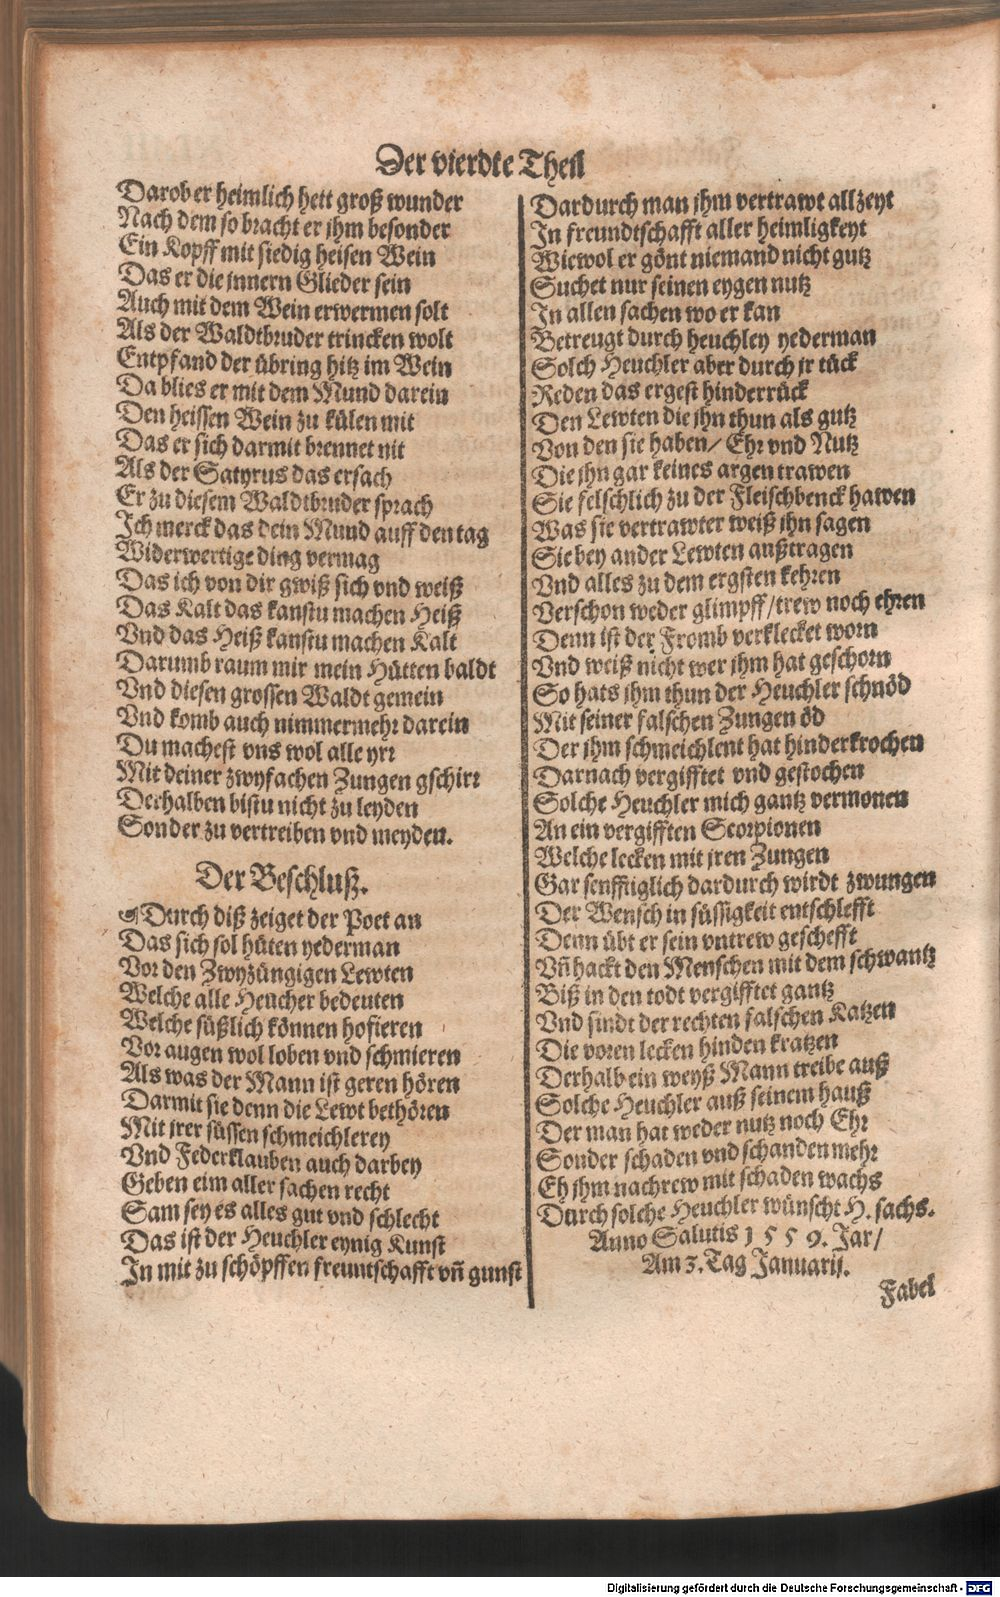 Der vierdte Theil
Darob er heimlich hett groß wunder
Nach dem so bracht er jhm besonder
Ein Kopff mit siedig heisen Wein
Das er die jnnern Glieder sein
Auch mit dem Wein erwermen solt
Als der Waldtbruder trincken wolt
Entpfand der übring hitz im Wein
Da blies er mit dem Mund darein
Den heissen Wein zu külen mit
Das er sich darmit brennet nit
Als der Satyrus das ersach
Er zu diesem Waldtbruder sprach
Ich merck das dein Mund auff den tag
Widerwertige ding vermag
Das ich von dir gwiß sich vnd weiß
Das Kalt das kanstu machen Heiß
Vnd das Heiß kanstu machen Kalt
Darumb raum mir mein Hütten baldt
Vnd diesen grossen Waldt gemein
Vnd komb auch nimmermehr darein
Du machest vns wol alle yrr
Mit deiner zwyfachen Zungen gschirr
Derhalben bistu nicht zu leyden
Sonder zu vertreiben vnd meyden.
Der Beschluß.
Durch diß zeiget der Poet an
Das sich sol hüten yederman
Vor den Zwyzüngigen Lewten
Welche alle Heucher bedeuten
Welche süßlich können hofieren
Vor augen wol loben vnd schmieren
Als was der Mann ist geren hören
Darmit sie denn die Lewt bethören
Mit jrer süssen schmeichlerey
Vnd Federklauben auch darbey
Geben eim aller sachen recht
Sam sey es alles gut vnd schlecht
Das ist der Heuchler eynig Kunst
In mit zu schöpffen freuntschafft vñ gunst
Dardurch man jhm vertrawt allzeyt
In freundtschafft aller heimligkeyt
Wiewol er gönt niemand nicht gutz
Suchet nur seinen eygen nutz
In allen sachen wo er kan
Betreugt durch heuchley yederman
Solch Heuchler aber durch jr tück
Reden das ergest hinderrück
Den Lewten die jhn thun als gutz
Von den sie haben/ Ehr vnd Nutz
Die jhn gar keines argen trawen
Sie felschlich zu der Fleischbenck hawen
Was sie vertrawter weiß jhn sagen
Sie bey ander Lewten außtragen
Vnd alles zu dem ergsten kehren
Verschon weder glimpff/trew noch ehren
Denn ist der Fromb verklecket worn
Vnd weiß nicht wer jhm hat geschorn
So hats jhm thun der Heuchler schnöd
Mit seiner falschen Zungen öd
Der jhm schmeichlent hat hinderkrochen
Darnach vergifftet vnd gestochen
Solche Heuchler mich gantz vermonen
An ein vergifften Scorpionen
Welche lecken mit jren Zungen
Gar senfftiglich dardurch wirdt zwungen
Der Mensch in süssigkeit entschlefft
Denn übt er sein vntrew geschefft
Vñ hackt den Menschen mit dem schwantz
Biß in den todt vergifftet gantz
Vnd sindt der rechten falschen Katzen
Die voren lecken hinden kratzen
Derhalb ein weyß Mann treibe auß
Solche Heuchler auß seinem hauß
Der man hat weder nutz noch Ehr
Sonder schaden vnd schanden mehr
Eh jhm nachrew mit schaden wachs
Durch solche Heuchler wünscht H. sachs.
Anno Salutis 1 5 5 9. Jar/
Am 3. Tag Januarij.
Fabel
Digitalisierung gefördert durch die Deutsche Forschungsgemeinschaft - DFG